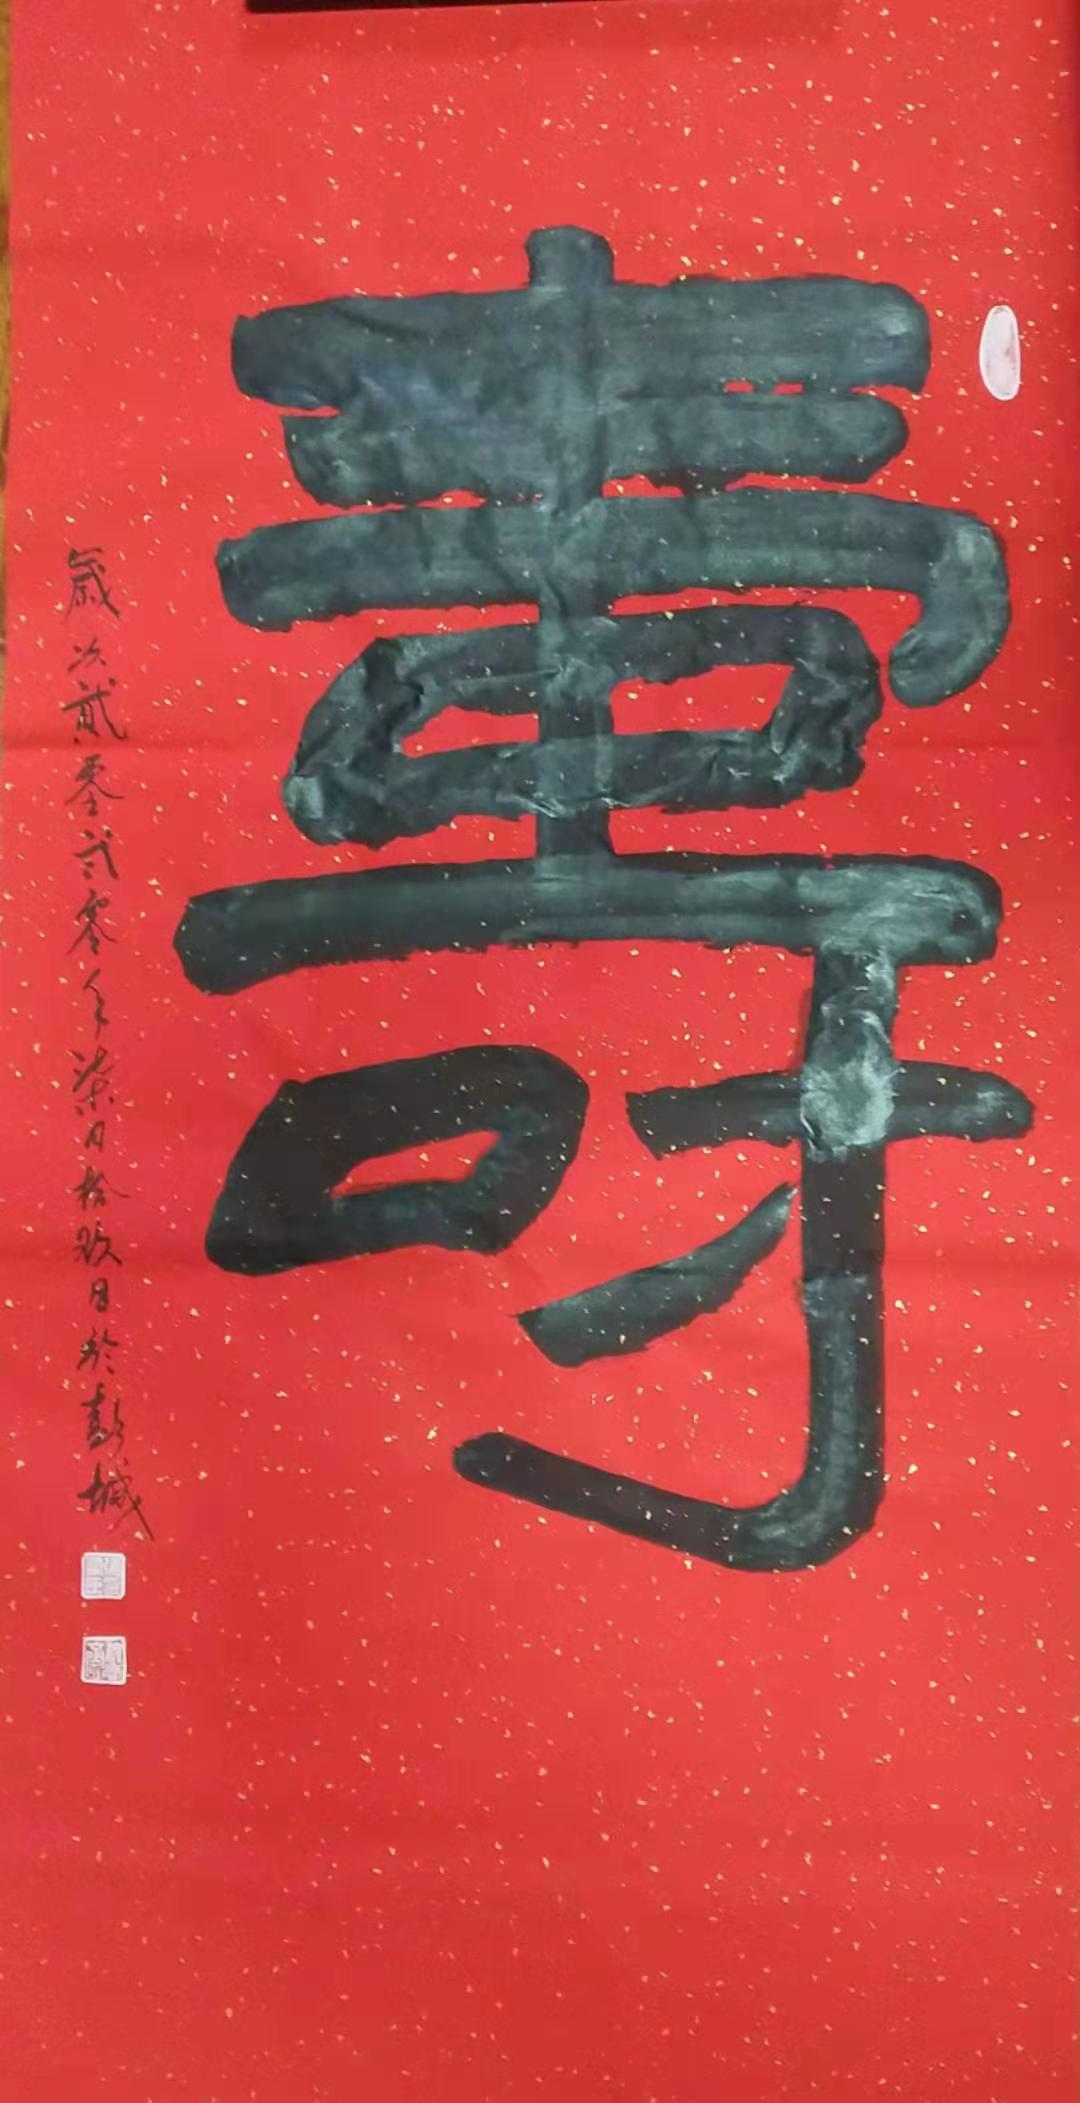 壽
歲次貳零貳零年柒月拾玖日於彭城